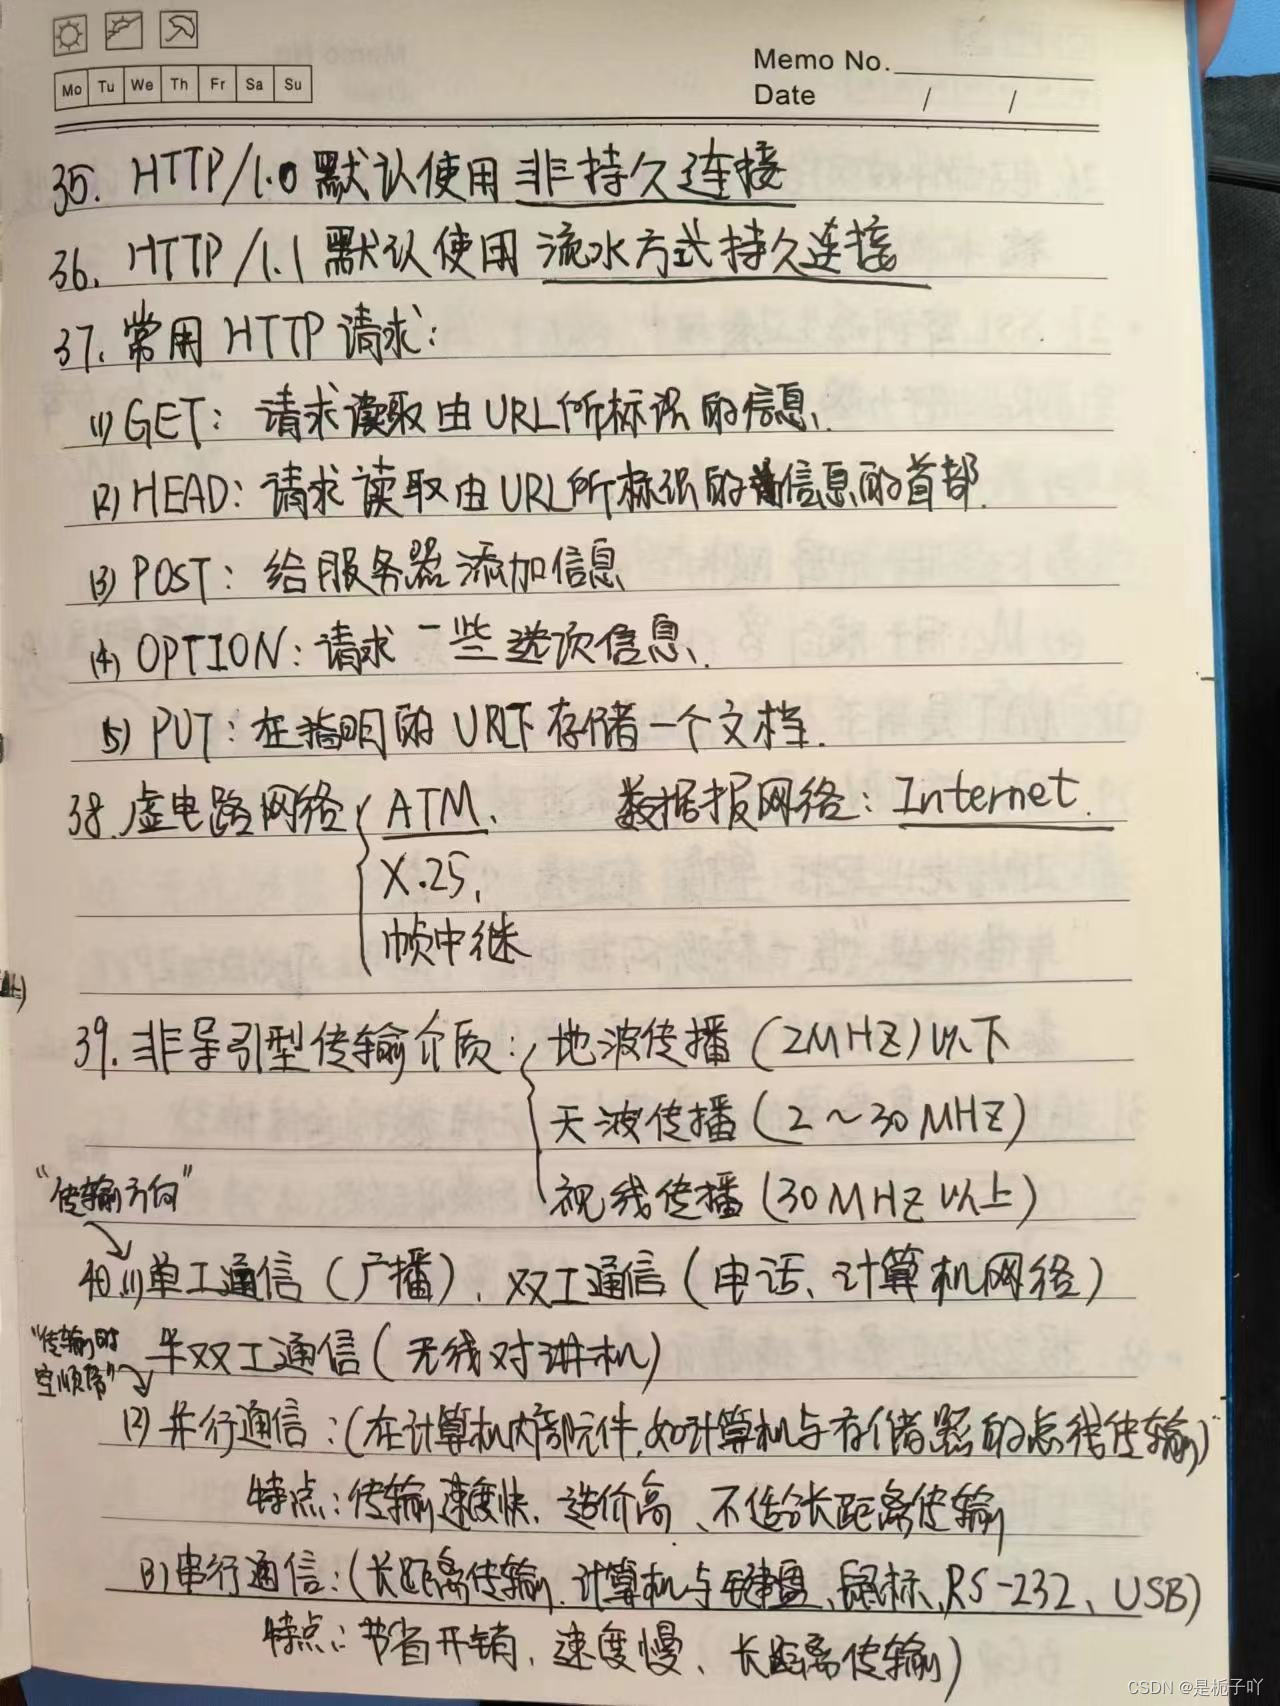 Mo Tu We Th Fr Sa Su
Memo No.
Date / /
35. HTTP/1.0 默认使用 非持久连接
36. HTTP/1.1 默认使用 流水方式持久连接
37. 常用 HTTP 请求:
(1) GET: 请求读取由URL所标识的信息.
(2) HEAD: 请求读取由URL所标识的信息的首部.
(3) POST: 给服务器添加信息
(4) OPTION: 请求一些选项信息.
(5) PUT: 在指明的URL下存储一个文档.
38. 虚电路网络 ATM、 数据报网络: Internet.
X.25、
帧中继
39. 非导引型传输介质: 地波传播 (2MHZ) 以下
天波传播 (2~30MHZ)
视线传播 (30MHZ以上)
"传输方向"
40.(1)单工通信 (广播)、双工通信 (电话、计算机网络)
半双工通信 (无线对讲机)
"传输时
空顺序"
(2) 并行通信: (在计算机内部元件,如计算机与存储器的总线传输)
特点: 传输速度快、造价高、不适合长距离传输
(3) 串行通信: (长距离传输、计算机与键盘、鼠标、RS-232、USB)
特点: 节省开销、速度慢、长距离传输)
CSDN @是栀子吖